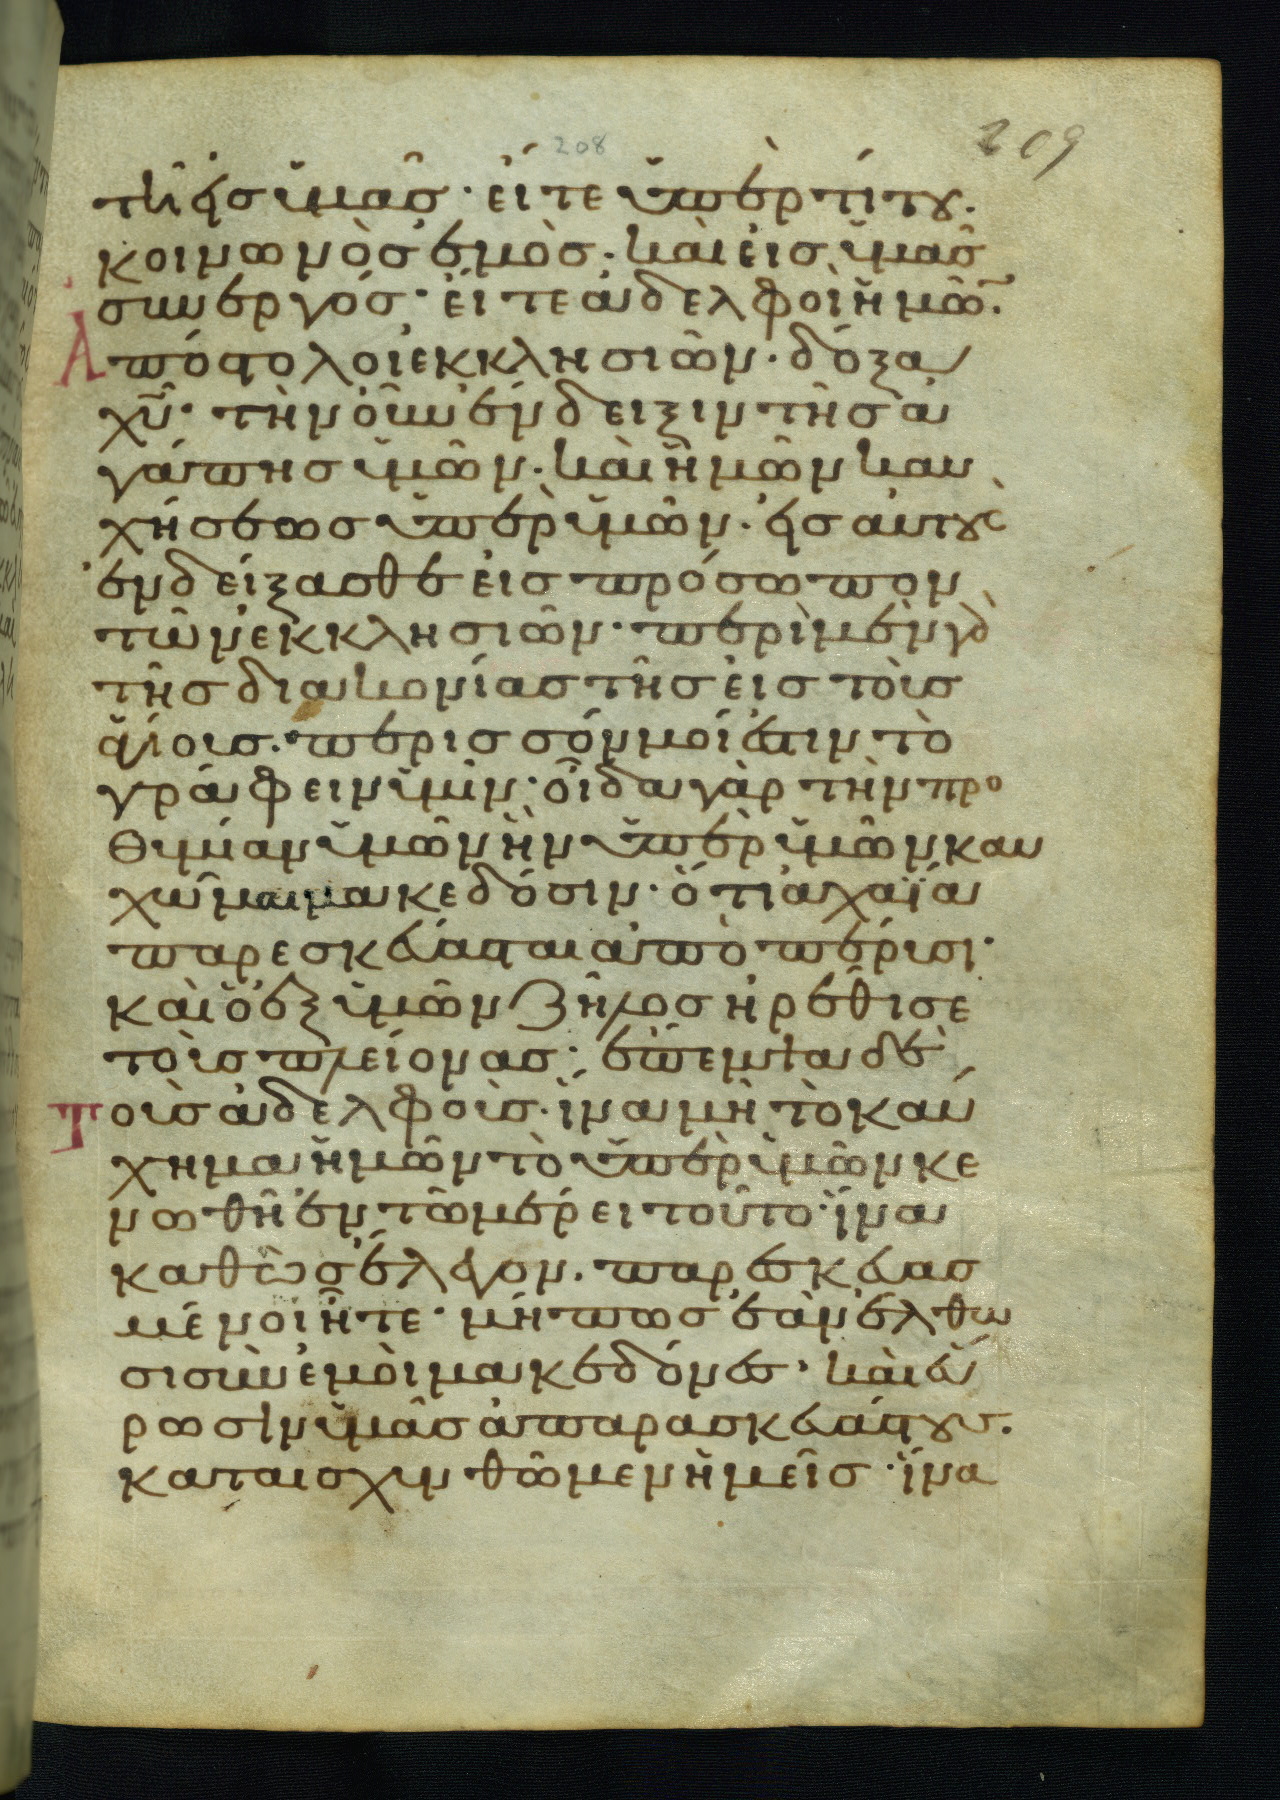 208
209
τῆ εἰς ὑμᾶς· εἴτε ὑπὲρ τίτου·
κοινωνὸς ἐμὸς· καὶ εἰς ὑμᾶς
συνεργός· εἴτε ἀδελφοὶ ἡμῶν·
Ἀπόστολοι ἐκκλησιῶν· δόξα
χῦ· τὴν οὖν ἔνδειξιν τῆς ἀ
γάπης ὑμῶν· καὶ ἡμῶν καυ
χήσεως ὑπὲρ ὑμῶν· εἰς αὐτοὺς
ἐνδείξασθε εἰς πρόσωπον
τῶν ἐκκλησιῶν· περὶ μὲν γὰρ
τῆς διακονίας τῆς εἰς τοὺς
ἁγίους· περισσόν μοί ἐστιν τὸ
γράφειν ὑμῖν· οἶδα γὰρ τὴν προ
θυμίαν ὑμῶν ἣν ὑπὲρ ὑμῶν καυ
χῶμαι μακεδόσιν· ὅτι ἀχαΐα
παρεσκεύασται ἀπὸ πέρυσι·
καὶ ὁ ἐξ ὑμῶν ζῆλος ἠρέθισε
τοὺς πλείονας· ἔπεμψα δὲ
Τοὺς ἀδελφοὺς· ἵνα μὴ τὸ καύ
χημα ἡμῶν τὸ ὑπὲρ ὑμῶν κε
νωθῆ ἐν τῶ μέρει τούτο· ἵνα
καθὼς ἔλεγον· παρεσκευας
μένοι ἦτε· μήπως ἐὰν ἔλθω
σι σὺν ἐμοὶ μακεδόνες· καὶ εὕ
ρωσιν ὑμᾶς ἀπαρασκευάστους·
καταισχυνθῶμεν ἡμεῖς· ἵνα